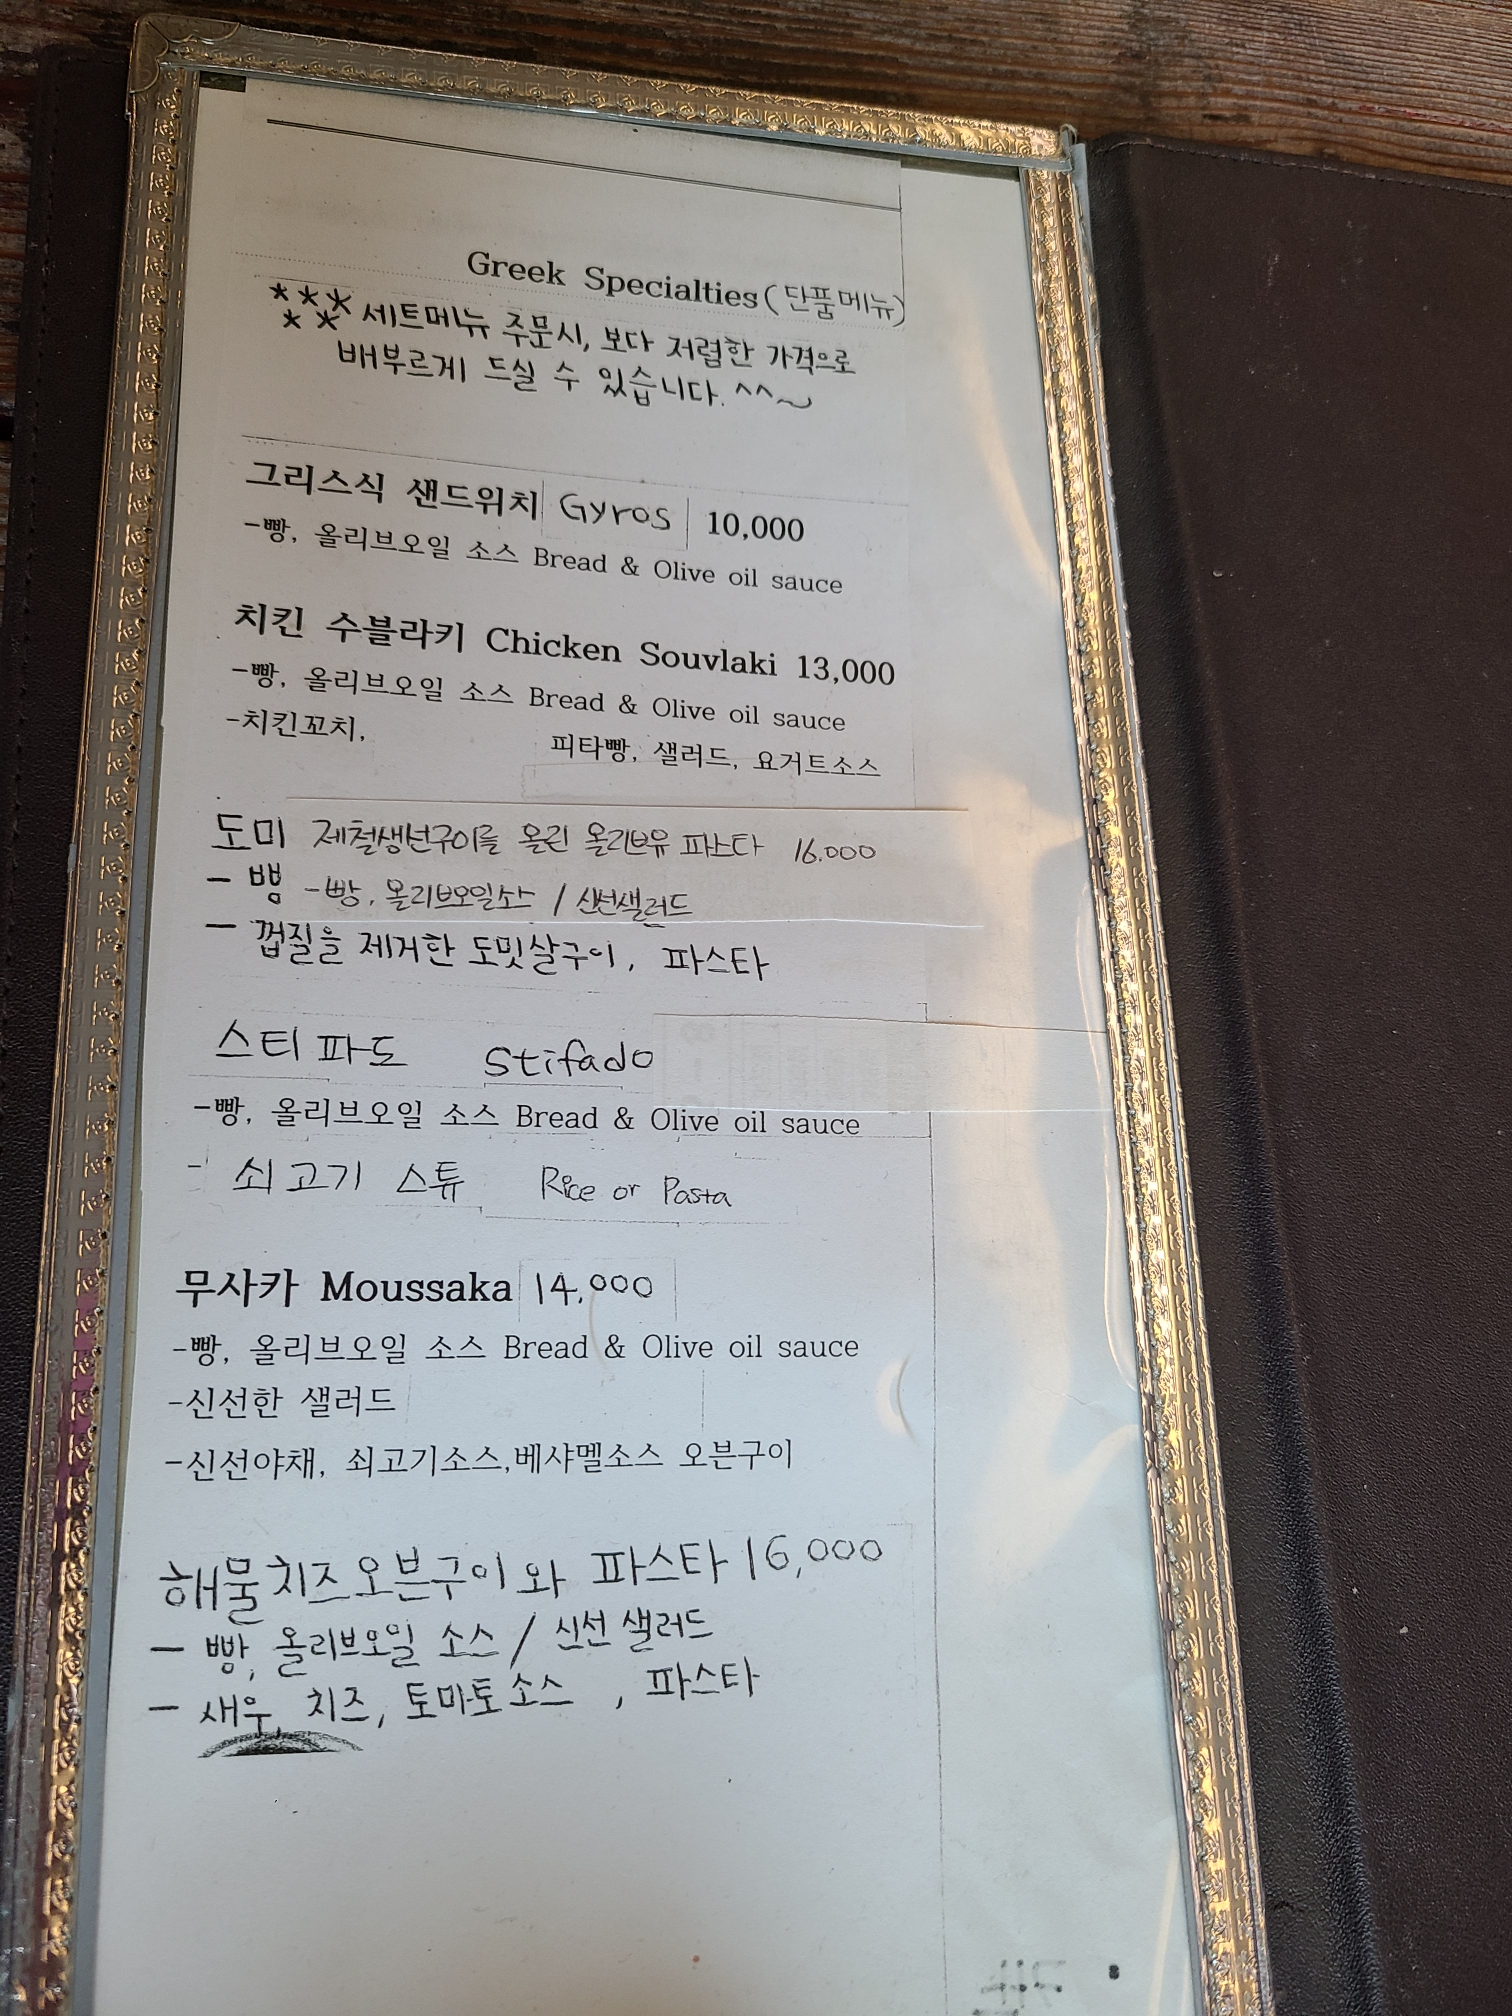 Greek Specialties(단품메뉴)
***세트메뉴 주문시, 보다 저렴한 가격으로
** 배부르게 드실 수 있습니다. ^^~
그리스식 샌드위치 Gyros 10,000
-빵, 올리브오일 소스 Bread & Olive oil sauce
치킨 수블라키 Chicken Souvlaki 13,000
-빵, 올리브오일 소스 Bread & Olive oil sauce
-치킨꼬치, 피타빵, 샐러드, 요거트소스
도미 제철생선구이를 올린 올리브유 파스타 16.000
- 빵 -빵, 올리브오일소스 / 신선샐러드
- 껍질을 제거한 도밋살구이, 파스타
스티파도 Stifado
-빵, 올리브오일 소스 Bread & Olive oil sauce
- 쇠고기 스튜 Rice or Pasta
무사카 Moussaka 14,000
-빵, 올리브오일 소스 Bread & Olive oil sauce
-신선한 샐러드
-신선야채, 쇠고기소스,베샤멜소스 오븐구이
해물치즈오븐구이와 파스타 16,000
- 빵, 올리브오일 소스 / 신선 샐러드
- 새우, 치즈, 토마토소스 , 파스타